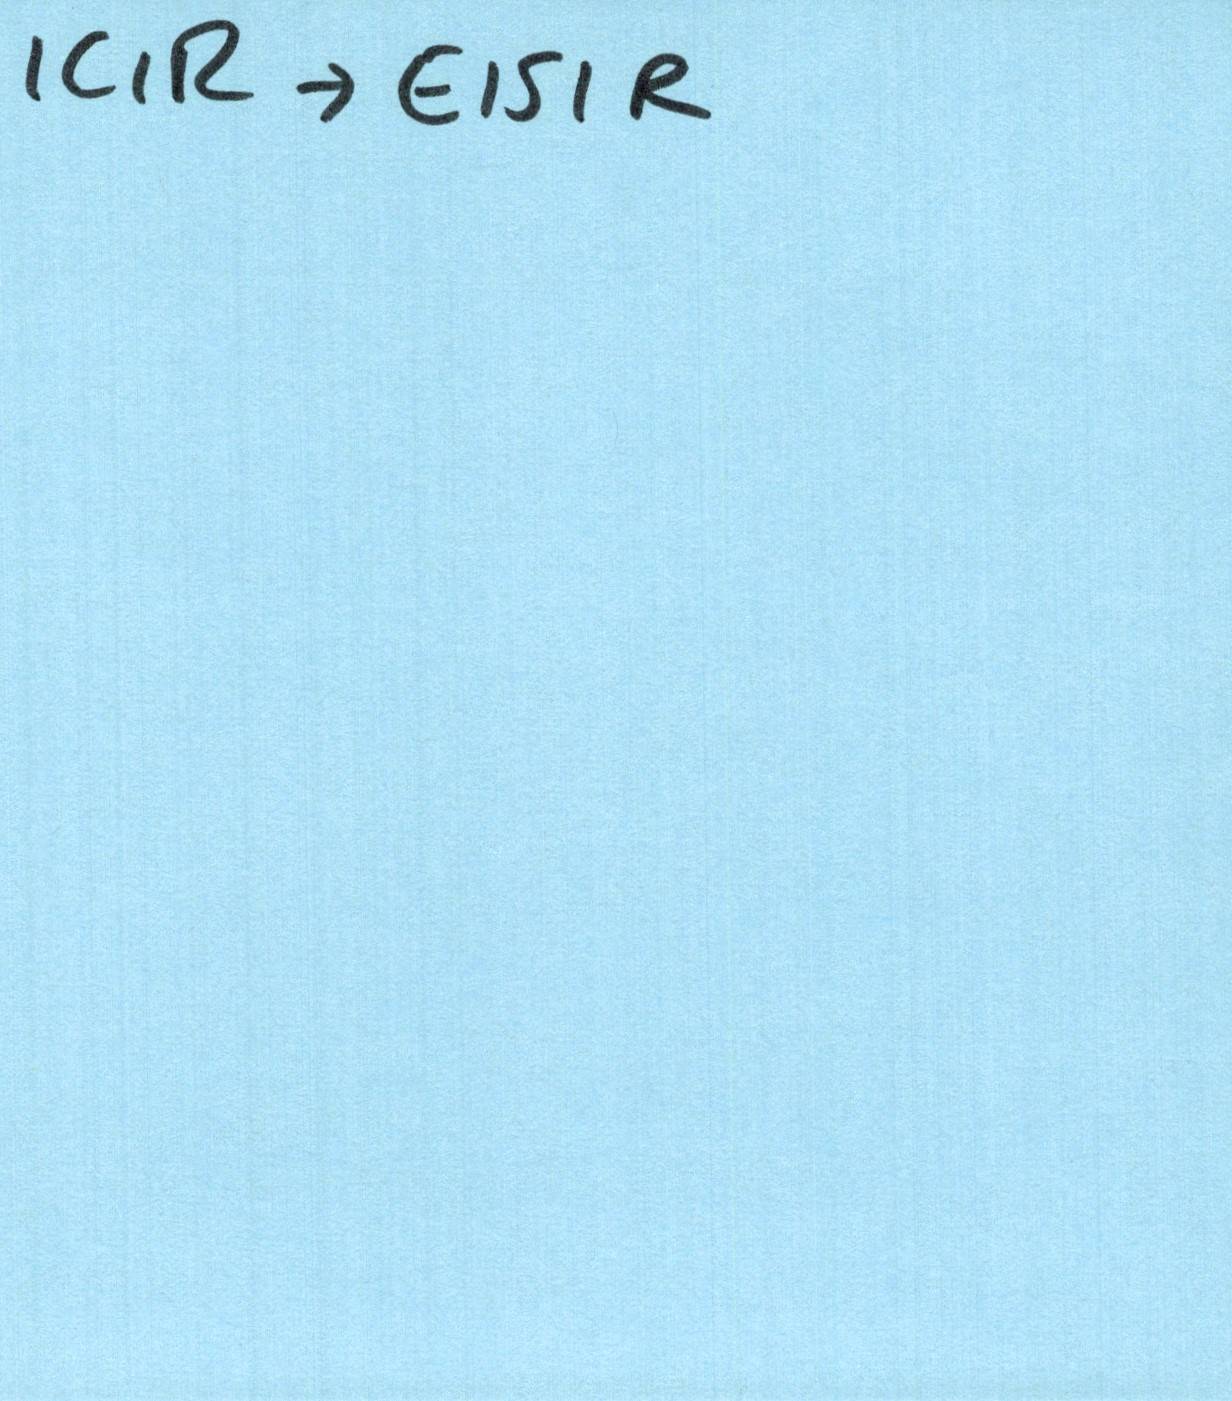 ICIR → EISIR